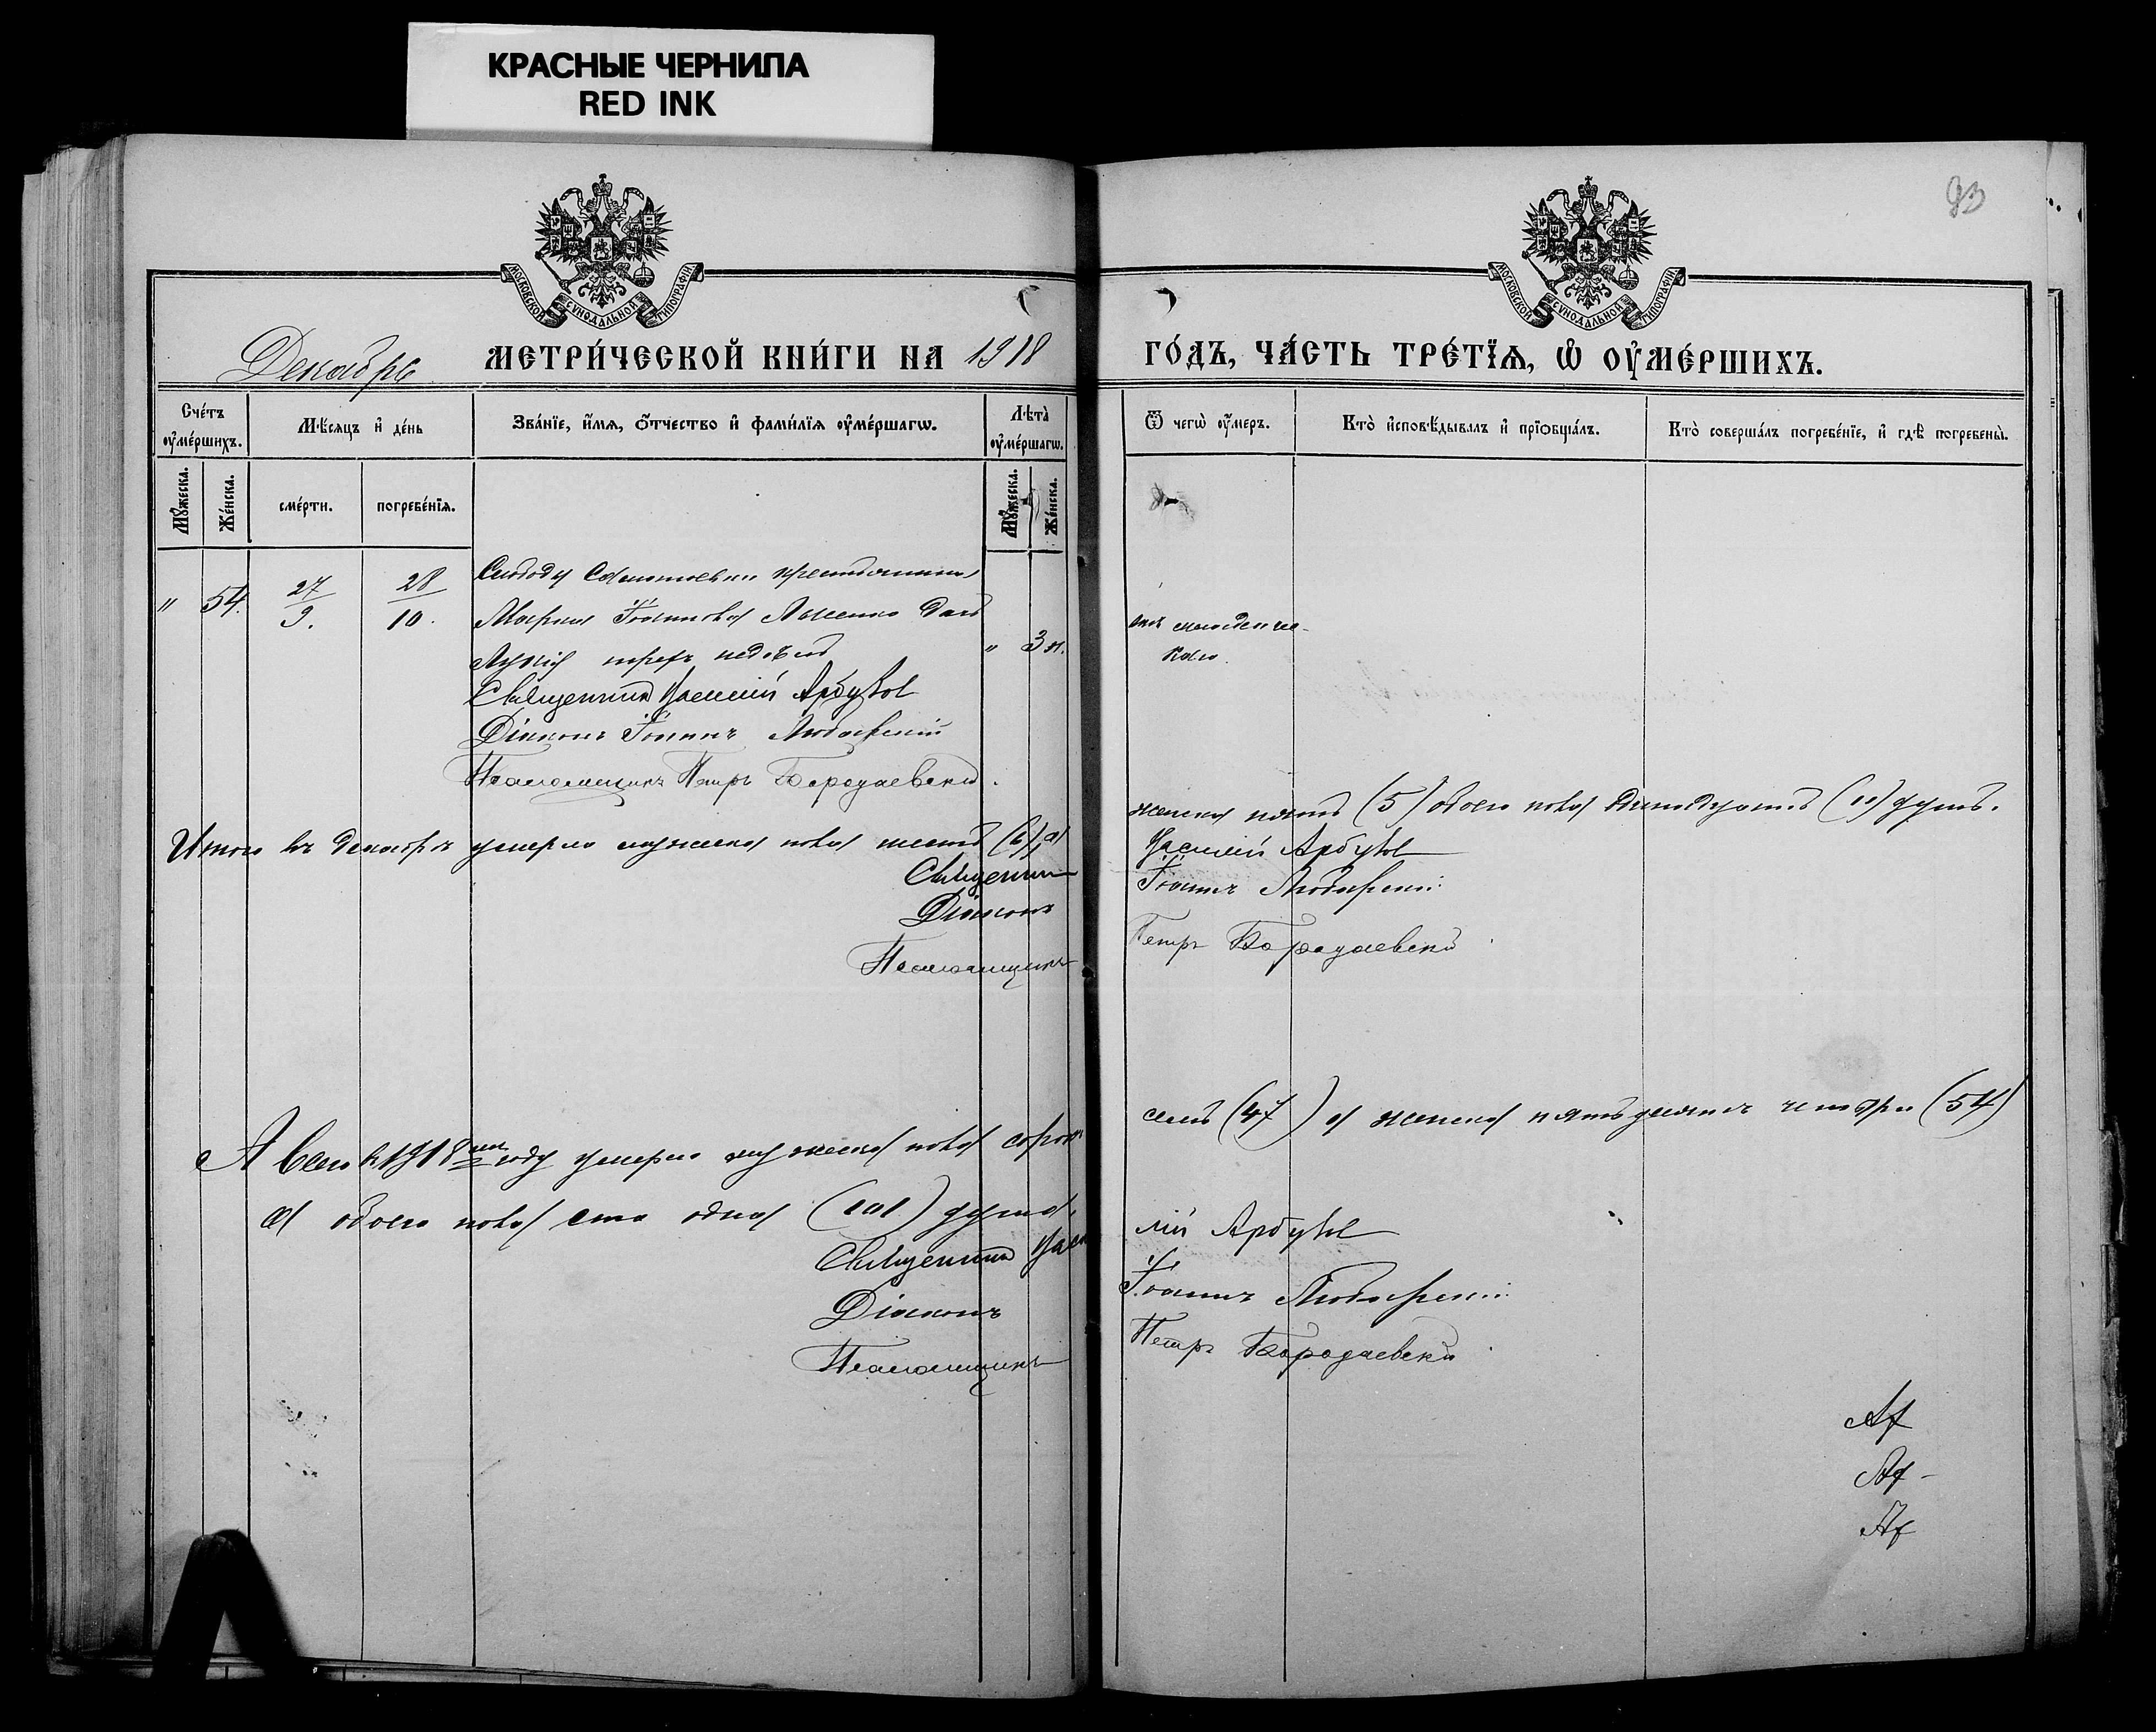 КРАСНЫЕ ЧЕРНИЛА
RED INK
93
МОСКОВСКОЙ СУНОДАЛЬНОЙ ТИПОГРАФІИ
МОСКОВСКОЙ СУНОДАЛЬНОЙ ТИПОГРАФІИ
Декабрь МЕТРИ́ЧЕСКОЙ КНИ́ГИ НА 1918
ГО́ДЪ, ЧА́СТЬ ТРЕ́ТЇѦ, Ѡ҆ ОУ҆МЕ́РШИХЪ.
Сче́тъ оу҆ме́ршихъ.
Мѣ́сяцъ и҆ де́нь
Зва́нїе, и҆́мѧ, ѻ҆́тчество и҆ фами́лїѧ оу҆ме́ршагѡ.
Лѣта̀ оу҆ме́ршагѡ.
Ѿ чегѡ̀ оу҆́меръ.
Кто̀ и҆сповѣ́дывалъ и҆ прїѡбща́лъ.
Кто̀ соверша́лъ погребе́нїе, и҆ гдѣ̀ погребены̀.
Мꙋ́жеска.
Же́нска.
сме́рти.
погребе́нїѧ.
Мꙋ́жеска.
Же́нска.
Слободы крестьянина
" 54. 27/9. 28/10.
Марка Іоаннова Лысенко дочь
отъ младенче-
трехъ недѣль " 3 н.
ства.
Священникъ Василій Арбузов
Діаконъ Іоаннъ Любарскій
Псаломщикъ Петръ Бородаевскій.
Итого въ Декабрѣ умерло мужеска пола шесть (6), а
женска пять (5) обоего пола одинадцать (11) душъ.
Священник Василій Арбузов
Діаконъ Іоаннъ Любарскій
Псаломщикъ Петръ Бородаевскій
А всего въ 1918 году умерло мужеска пола сорокъ
семь (47) а женска пятьдесятъ четыре (54)
а обоего пола сто одна (101) душа.
Священник Василій Арбузов
Діаконъ Іоаннъ Любарскій
Псаломщикъ Петръ Бородаевскій